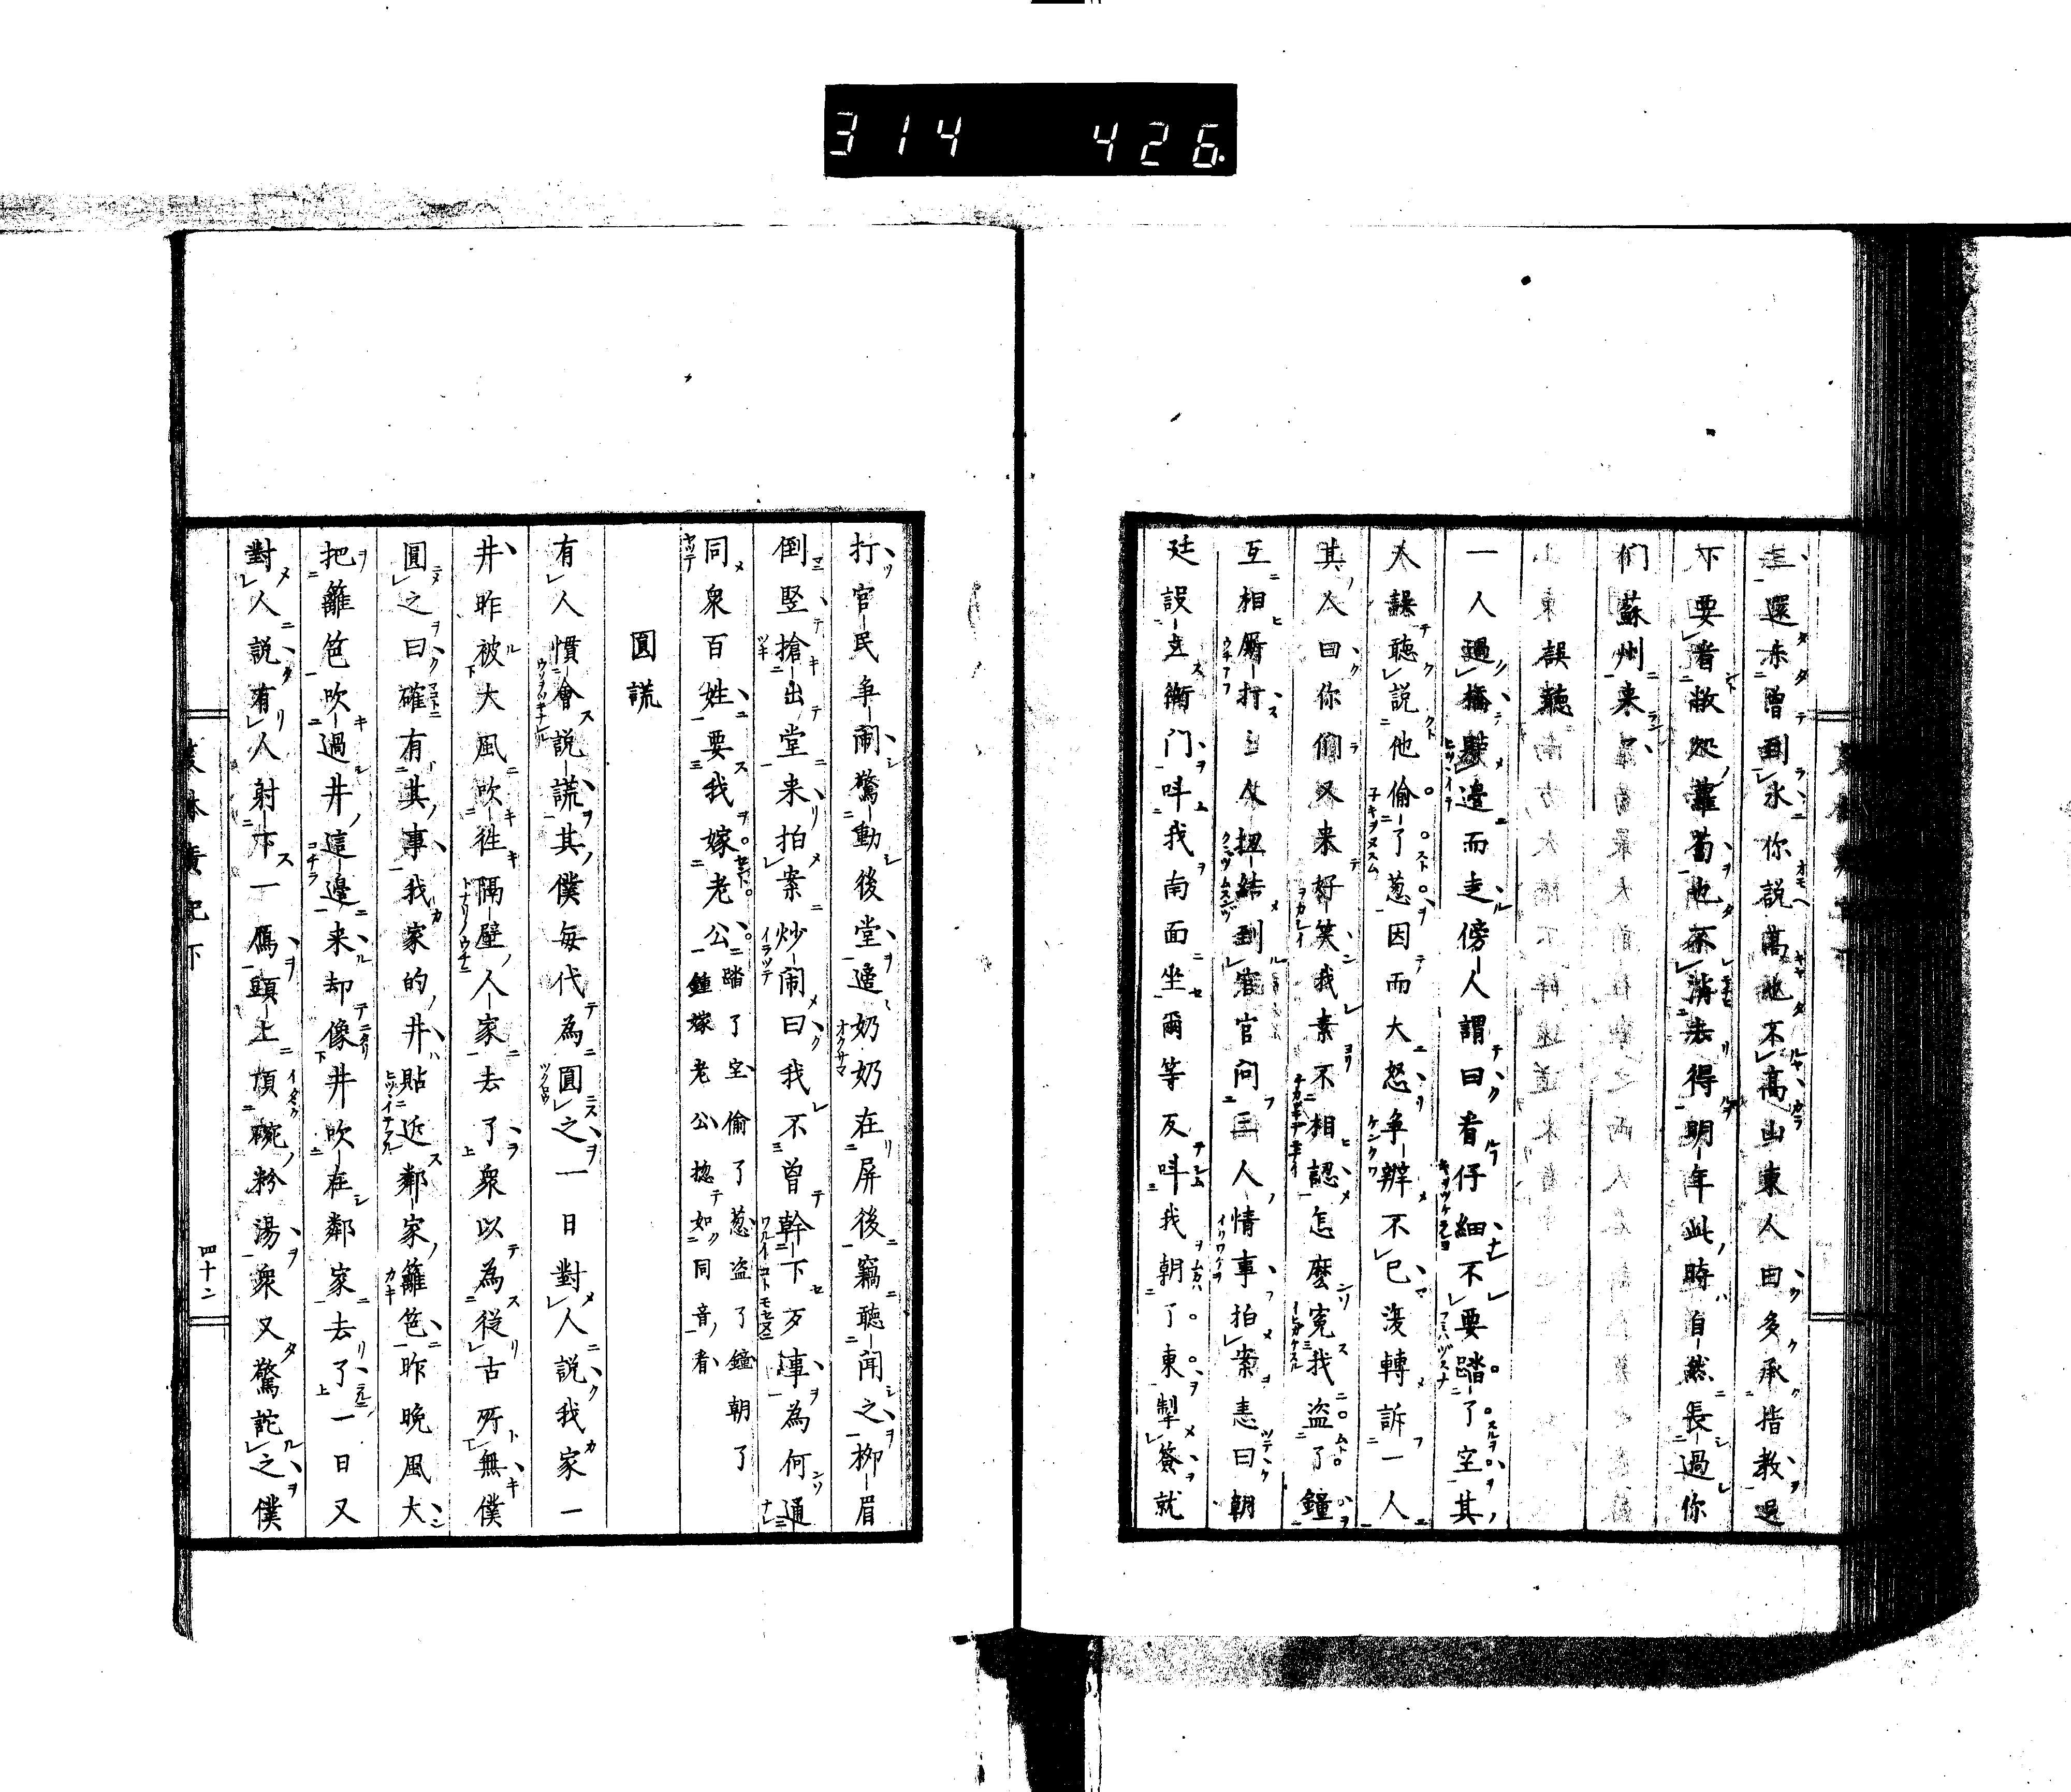 314 426
主還未曾到水你説高也不高山東人曰多承指教過
下要看救処蘿蔔也不消去得明年此時自然長過你
们蘇州来
誤聽
一人過橋邉而走傍人謂曰看仔細不要踏了空其
人誤聽説他偷了葱因而大怒争辨不已復轉訴一人
其人曰你們又来好笑我素不相認怎麽冤我盗了鐘
互相厮打三人扭結到官官問三人情事拍案恚曰朝
廷設立衙门呌我南面坐爾等反呌我朝了東掣簽就
打官民争闹驚動後堂適奶奶在屏後竊聽聞之柳眉
倒竪搶出堂来拍案炒闹曰我不曽幹下歹事為何通
同衆百姓要我嫁老公
踏了空偷了葱盗了鐘朝了
鍾嫁老公揔如同音看
圓謊
有人慣會説謊其僕毎代為圓之一日對人説我家一
井昨被大風吹徃隔壁人家去了衆以為従古所無僕
圓之曰確有其事我家的井貼近鄰家籬笆昨晚風大
把籬笆吹過井這邉来却像井吹在鄰家去了一日又
對人説有人射下一鴈頭上頂碗粉湯衆又驚詫之僕
四十二